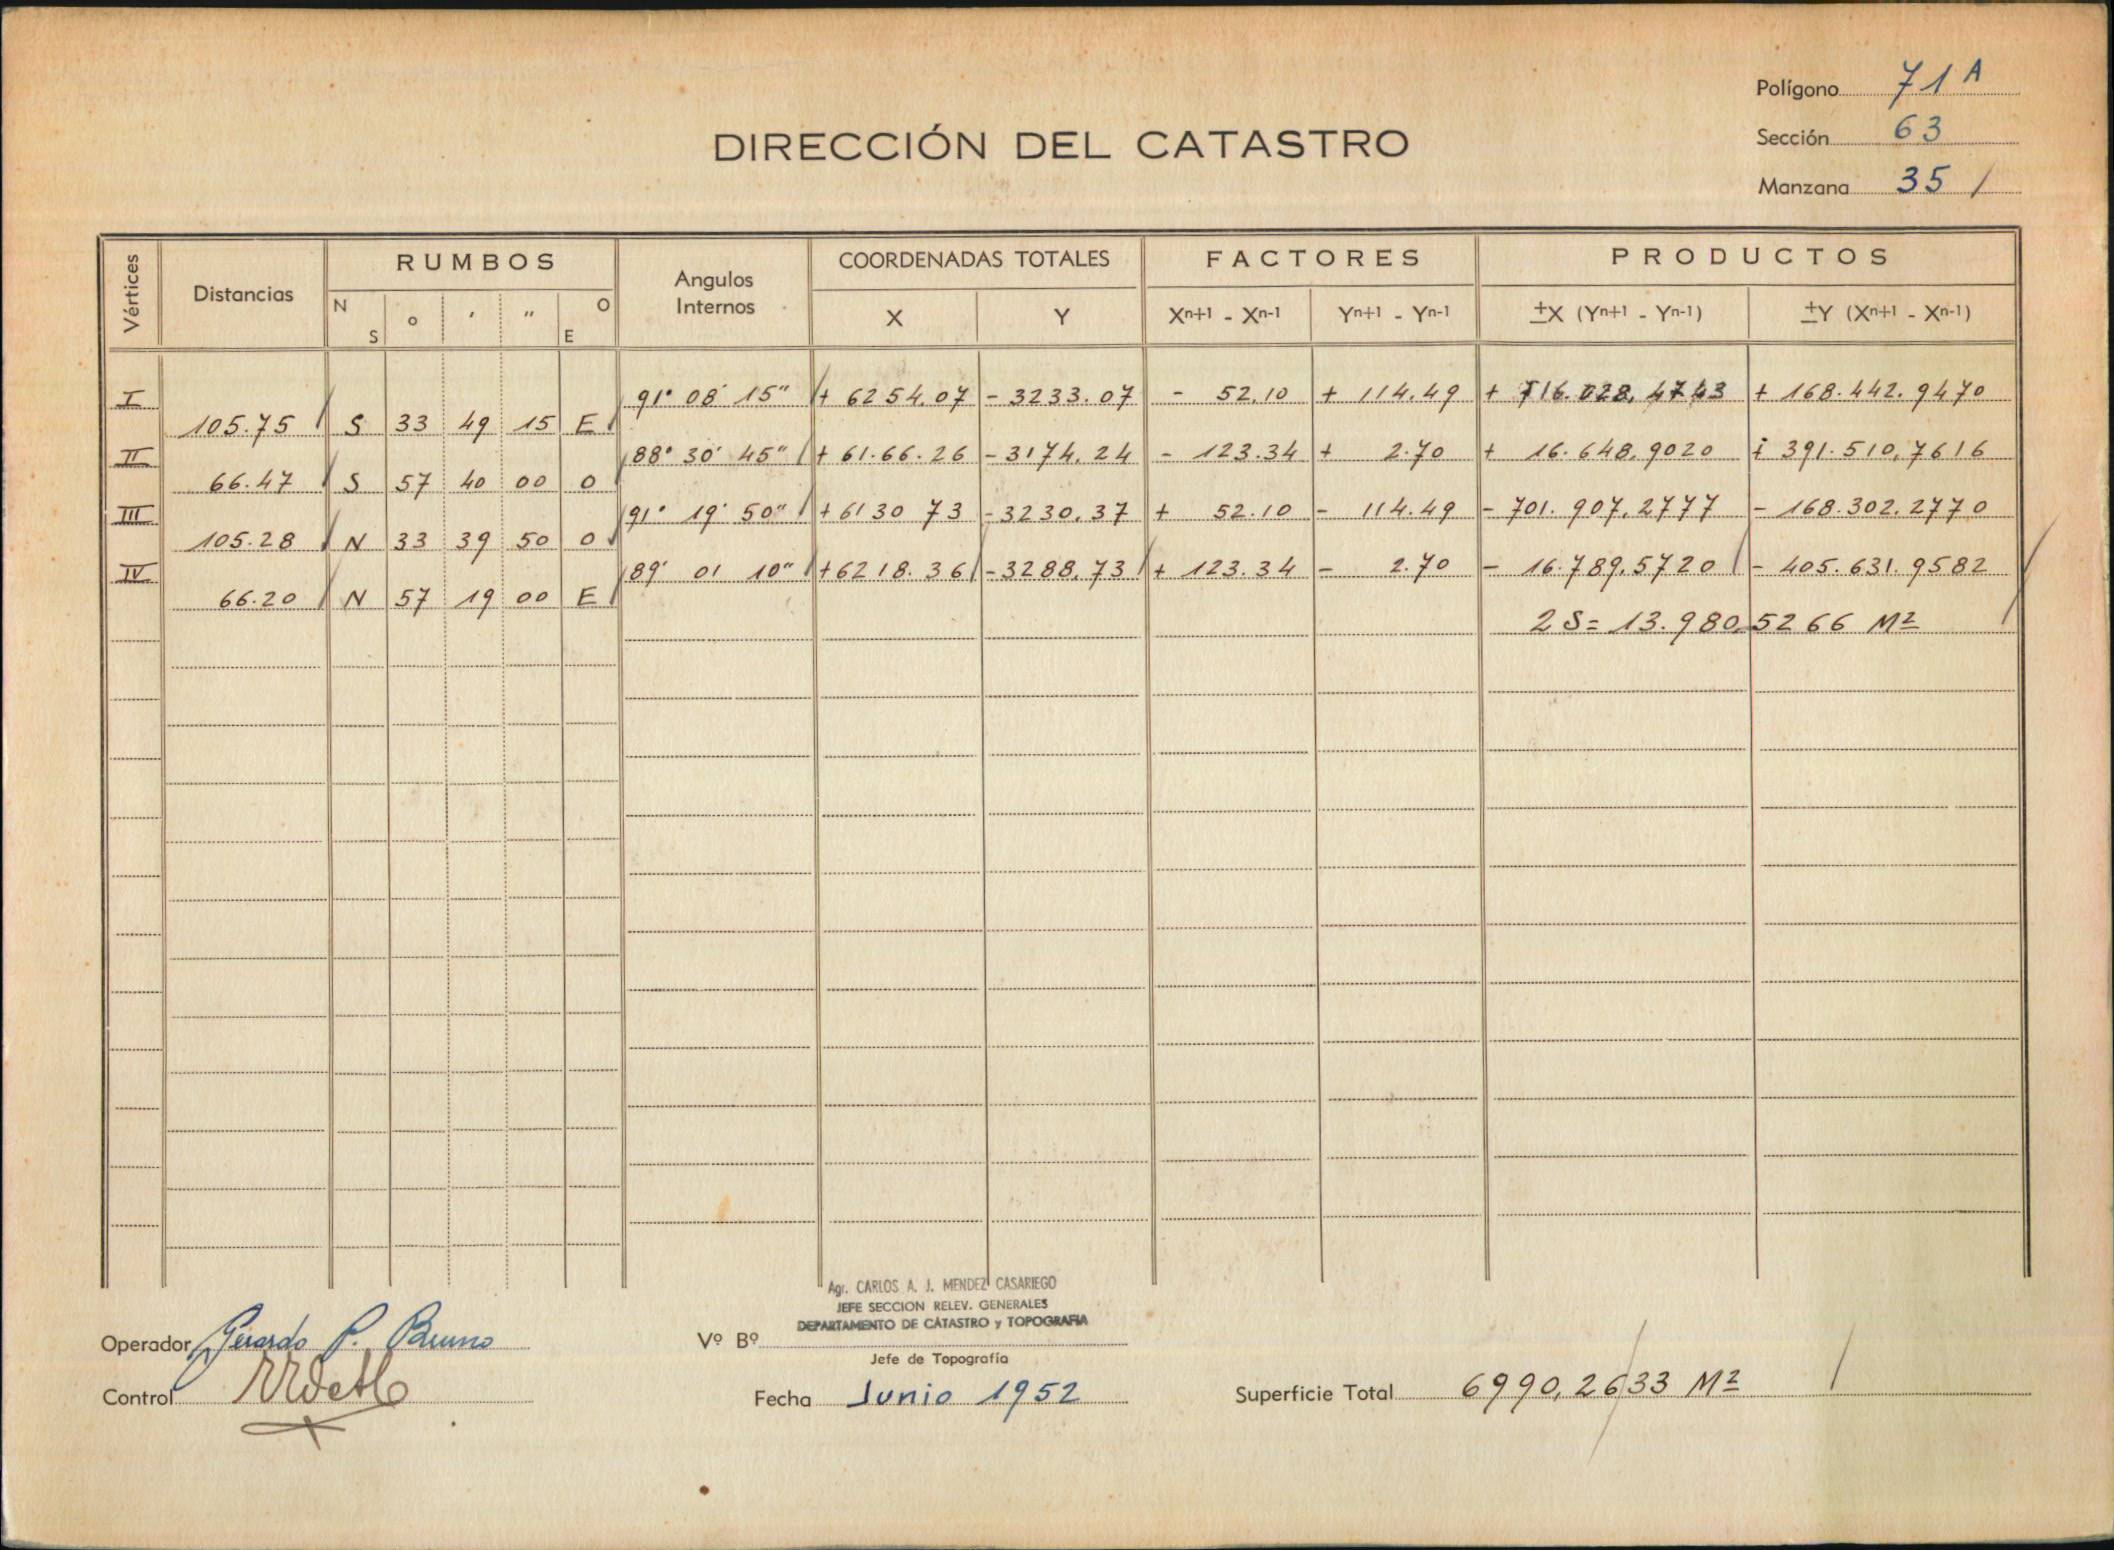 Polígono 71 A
DIRECCIÓN DEL CATASTRO
Sección 63
Manzana 35 /
Vértices Distancias RUMBOS Angulos Internos COORDENADAS TOTALES FACTORES PRODUCTOS
N S o ′ ″ O E X Y Xn+1 - Xn-1 Yn+1 - Yn-1 ±X (Yn+1 - Yn-1) ±Y (Xn+1 - Xn-1)
I 91° 08′ 15″ + 6254.07 - 3233.07 - 52.10 + 114.49 + 716.028,4743 + 168.442.9470
105.75 S 33 49 15 E
II 88° 30′ 45″ + 61.66.26 - 3174.24 - 123.34 + 2.70 + 16.648,9020 + 391.510,7616
66.47 S 57 40 00 O
III 91° 19′ 50″ + 6130 73 - 3230.37 + 52.10 - 114.49 - 701.907,2777 - 168.302.2770
105.28 N 33 39 50 O
IV 89° 01 10″ + 6218.36 - 3288,73 + 123.34 - 2.70 - 16.789,5720 - 405.631.9582
66.20 N 57 19 00 E
2 S = 13.980,5266 M2
Agr. CARLOS A. J. MENDEZ CASARIEGO
JEFE SECCION RELEV. GENERALES
DEPARTAMENTO DE CATASTRO y TOPOGRAFIA
Operador Gerardo P. Bruno Vº Bº
Jefe de Topografía
Control Fecha Junio 1952 Superficie Total 6990,2633 M2